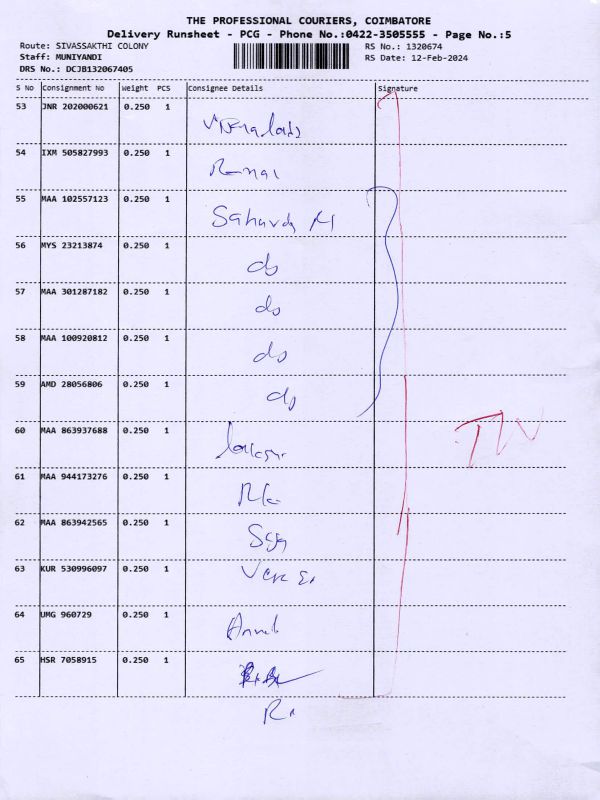 THE PROFESSIONAL COURIERS, COIMBATORE
Delivery Runsheet - PCG - Phone No.:0422-3505555 - Page No.:5
Route: SIVASSAKTHI COLONY
Staff: MUNIYANDI
DRS No.: DCJB132067405
RS No.: 1320674
RS Date: 12-Feb-2024
S No Consignment No Weight PCS Consignee Details Signature
53 JNR 202000621 0.250 1
54 IXM 505827993 0.250 1
55 MAA 102557123 0.250 1
56 MYS 23213874 0.250 1
do
57 MAA 301287182 0.250 1
do
58 MAA 100920812 0.250 1
do
59 AMD 28056806 0.250 1
do
60 MAA 863937688 0.250 1
61 MAA 944173276 0.250 1
62 MAA 863942565 0.250 1
63 KUR 530996097 0.250 1
64 UMG 960729 0.250 1
65 HSR 7058915 0.250 1